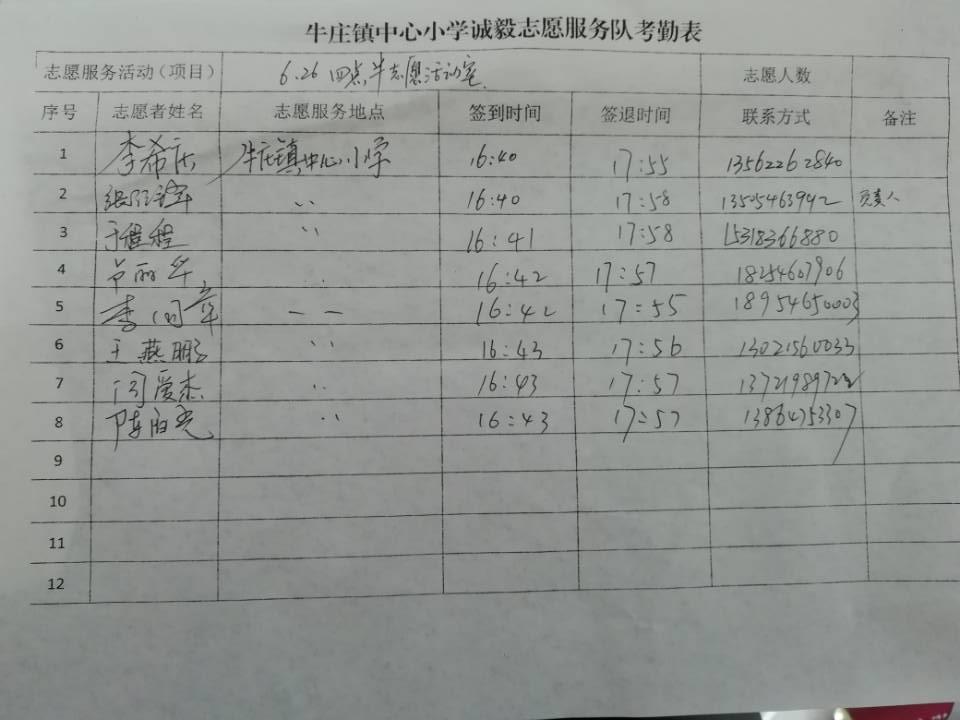 牛庄镇中心小学诚毅志愿服务队考勤表
志愿服务活动（项目） 6.26 四点半志愿活动室 志愿人数
序号 志愿者姓名 志愿服务地点 签到时间 签退时间 联系方式 备注
1 李希庆 牛庄镇中心小学 16:40 17:55 13562262840
2 16:40 17:58 13505463942 负责人
3 于程程 16:41 17:58 15318366880
4 丽华 16:42 17:57 18254607906
5 李国章 16:42 17:55 18954650003
6 王燕鹏 16:43 17:56 13021560033
7 闫爱杰 16:43 17:57 13721989722
8 陈 16:43 17:57 13864753307
9
10
11
12